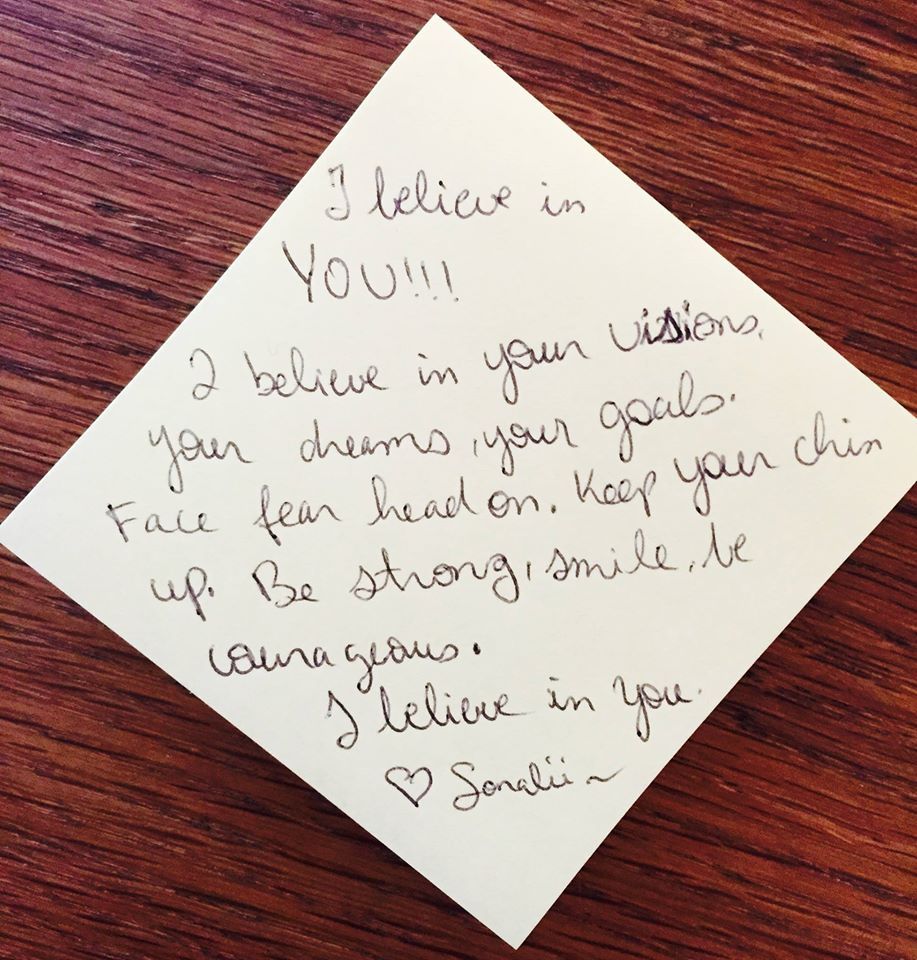 I believe in
YOU!!!
I believe in your visions,
your dreams, your goals.
Face fear head on. Keep your chin
up. Be strong, smile, be
courageous.
I believe in you.
♡ Sonalii ~